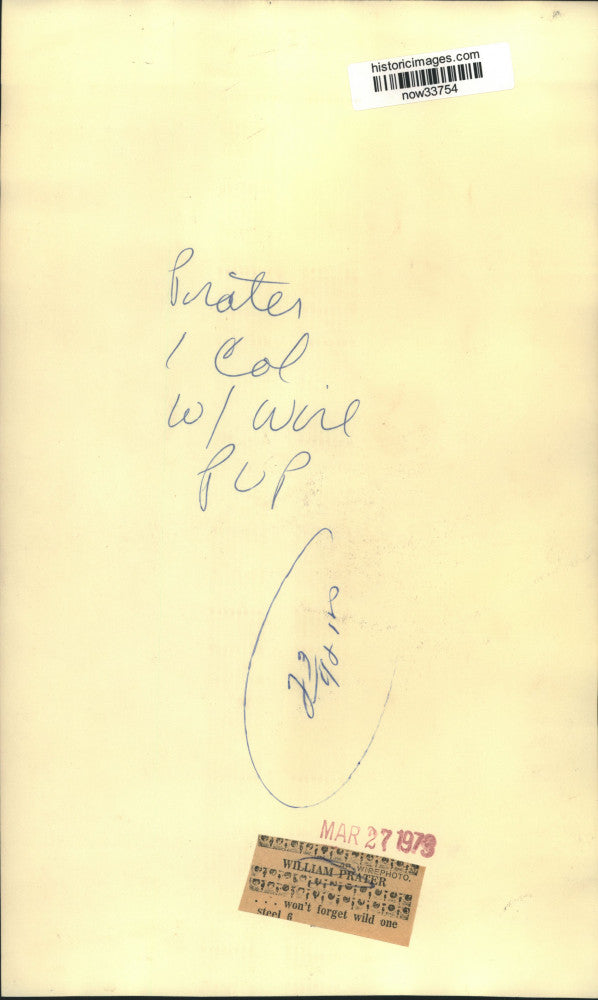 historicimages.com
now33754
Prater
1 Col
w/ wire
PUP
MAR 27 1979
WIREPHOTO.
WILLIAM PRATER
. . . won't forget wild one
steel 6